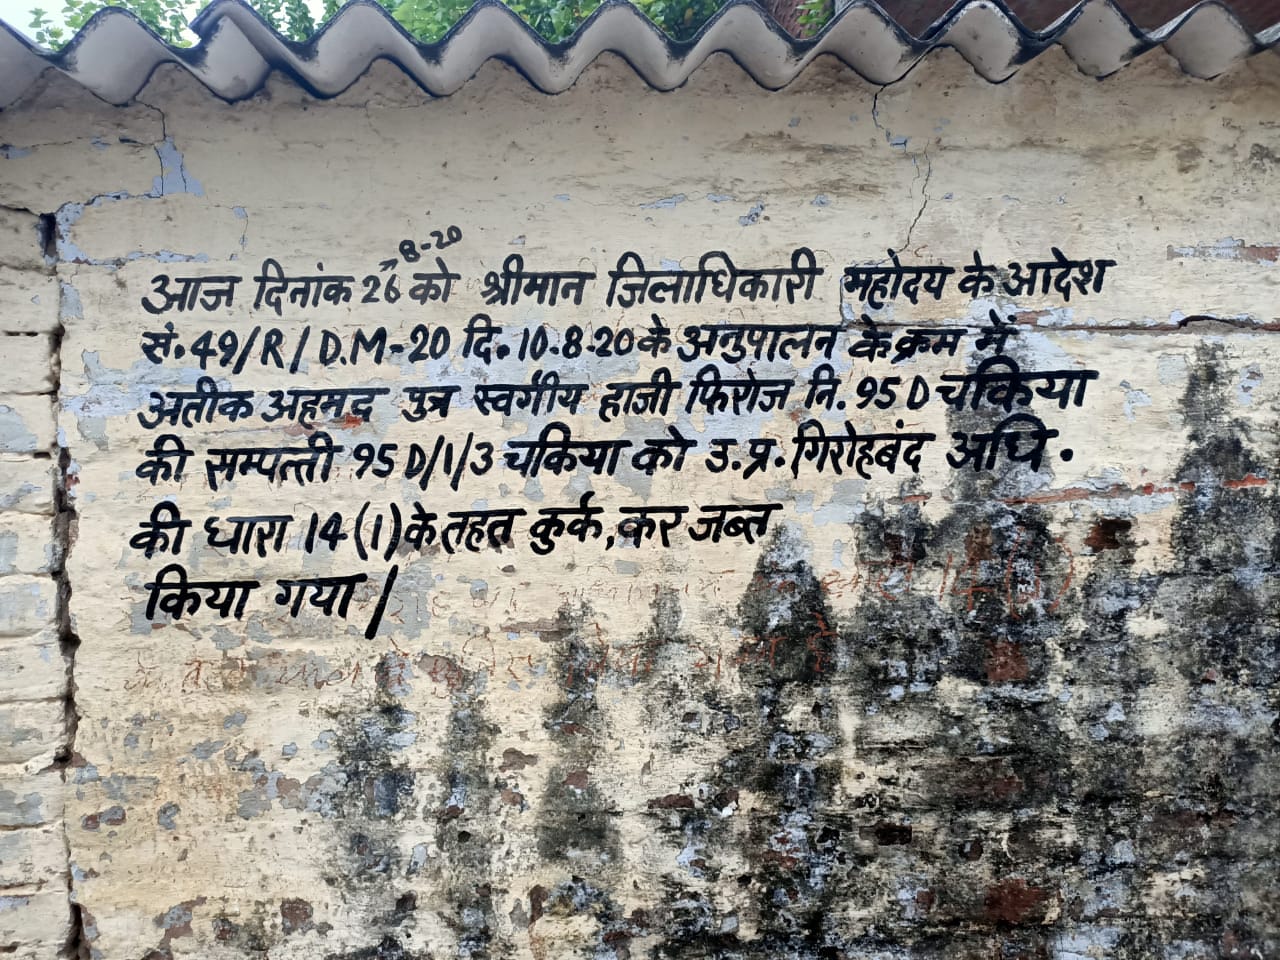 आज दिनांक 26-8-20 को श्रीमान जिलाधिकारी महोदय के आदेश
सं. 49/R/D.M-20 दि. 10-8-20 के अनुपालन के क्रम में
अतीक अहमद पुत्र स्वर्गीय हाजी फिरोज नि. 95 D चकिया
की सम्पत्ती 95 D/1/3 चकिया को उ.प्र. गिरोहबंद अधि.
की धारा 14(1) के तहत कुर्क, कर जब्त
किया गया /
14(1)